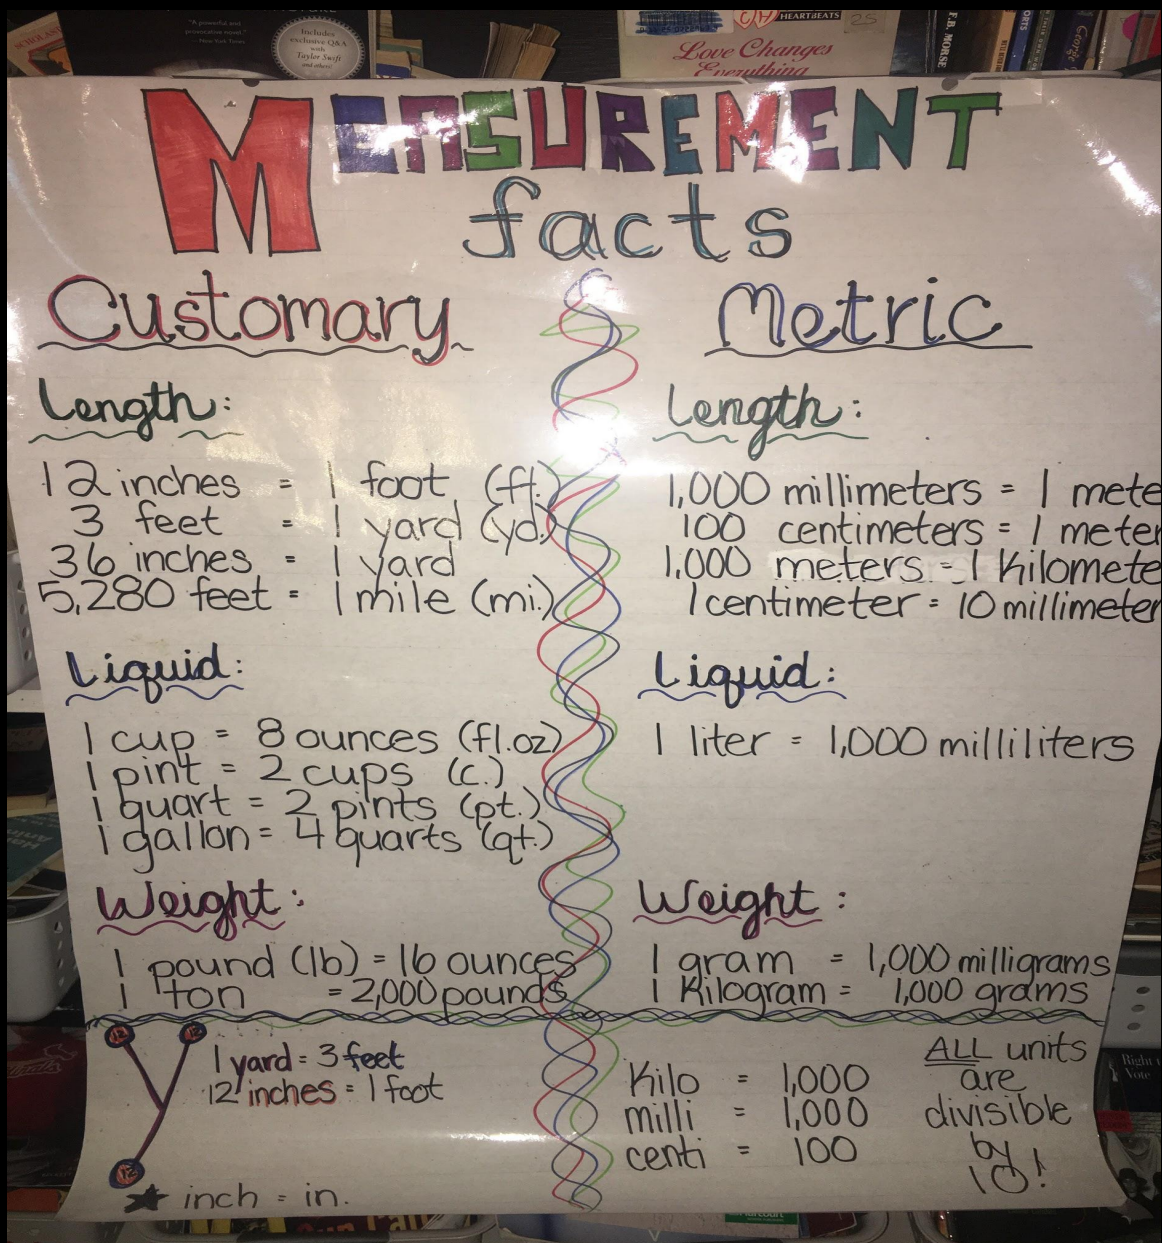 "A powerful and
provocative novel."
—New York Times
Includes
exclusive Q&A
with
Taylor Swift
and others!
SCHOLAST
HEARTBEATS
25
Love Changes
Everything
F.B. MORSE
George
MEASUREMENT
facts
Customary
Length:
12 inches = 1 foot (ft.)
3 feet = 1 yard (yd.)
36 inches = 1 yard
5,280 feet = 1 mile (mi.)
Liquid:
1 cup = 8 ounces (fl.oz)
1 pint = 2 cups (c.)
1 quart = 2 pints (pt.)
1 gallon = 4 quarts (qt.)
Weight:
1 pound (lb) = 16 ounces
1 ton = 2,000 pounds
12 12
1 yard = 3 feet
12 inches = 1 foot
12
★ inch = in.
Metric
Length:
1,000 millimeters = 1 mete
100 centimeters = 1 meter
1,000 meters = 1 Kilomete
1 centimeter = 10 millimeter
Liquid:
1 liter = 1,000 milliliters
Weight:
1 gram = 1,000 milligrams
1 Kilogram = 1,000 grams
Kilo = 1,000
milli = 1,000
centi = 100
ALL units
are
divisible
by
10!
Right
Vote